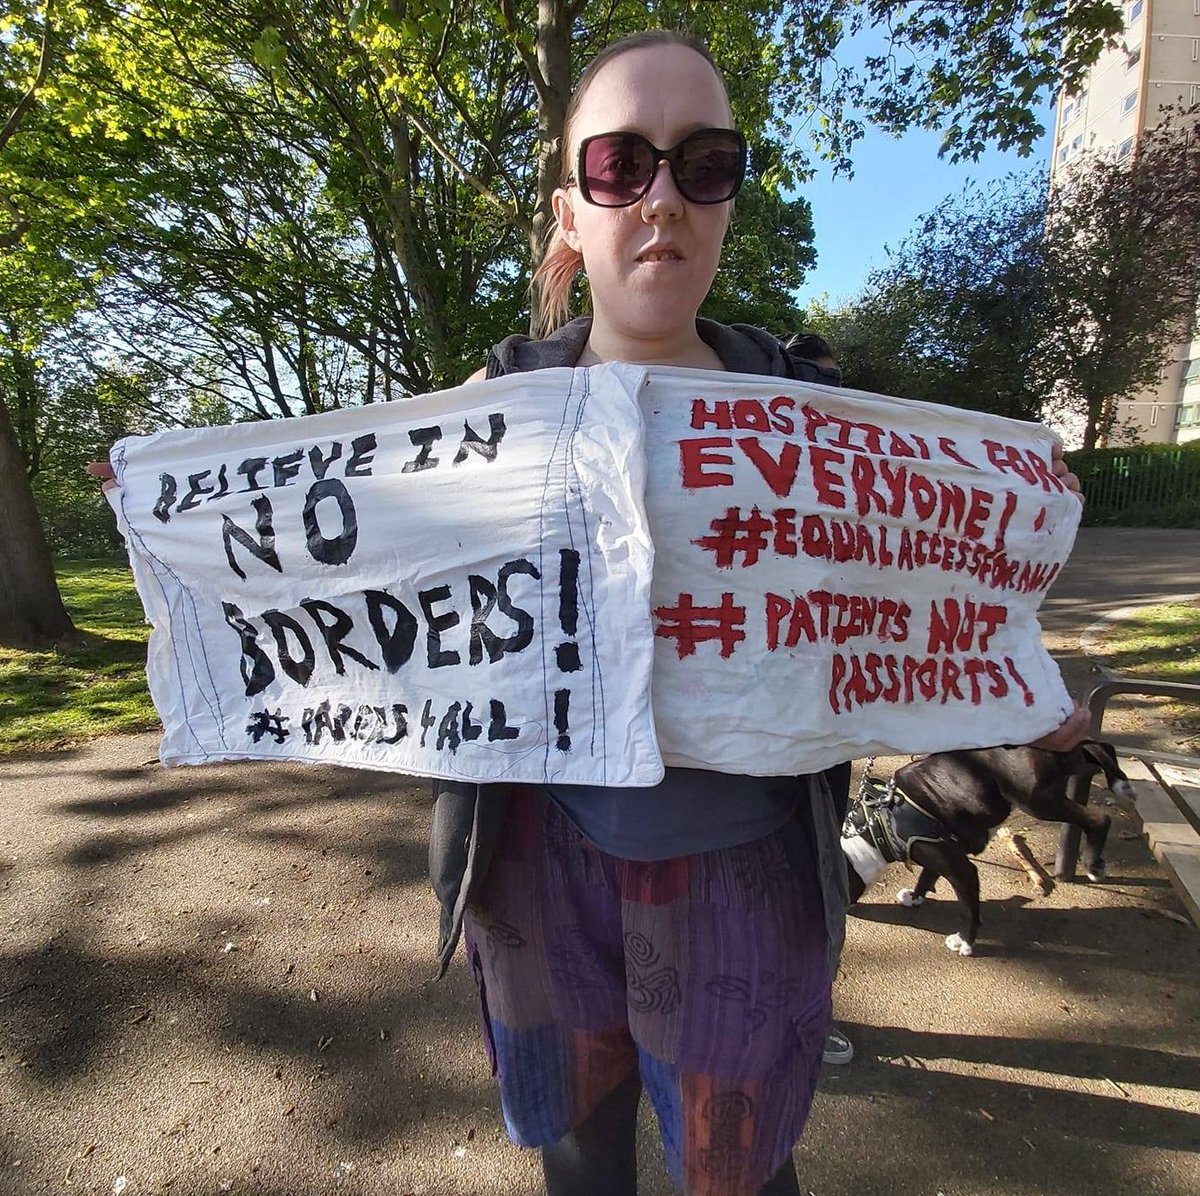 BELIEVE IN
NO
BORDERS!
# PAPERS 4 ALL!
HOSPITALS FOR
EVERYONE!
#EQUALACCESSFORALL
# PATIENTS NOT
PASSPORTS!